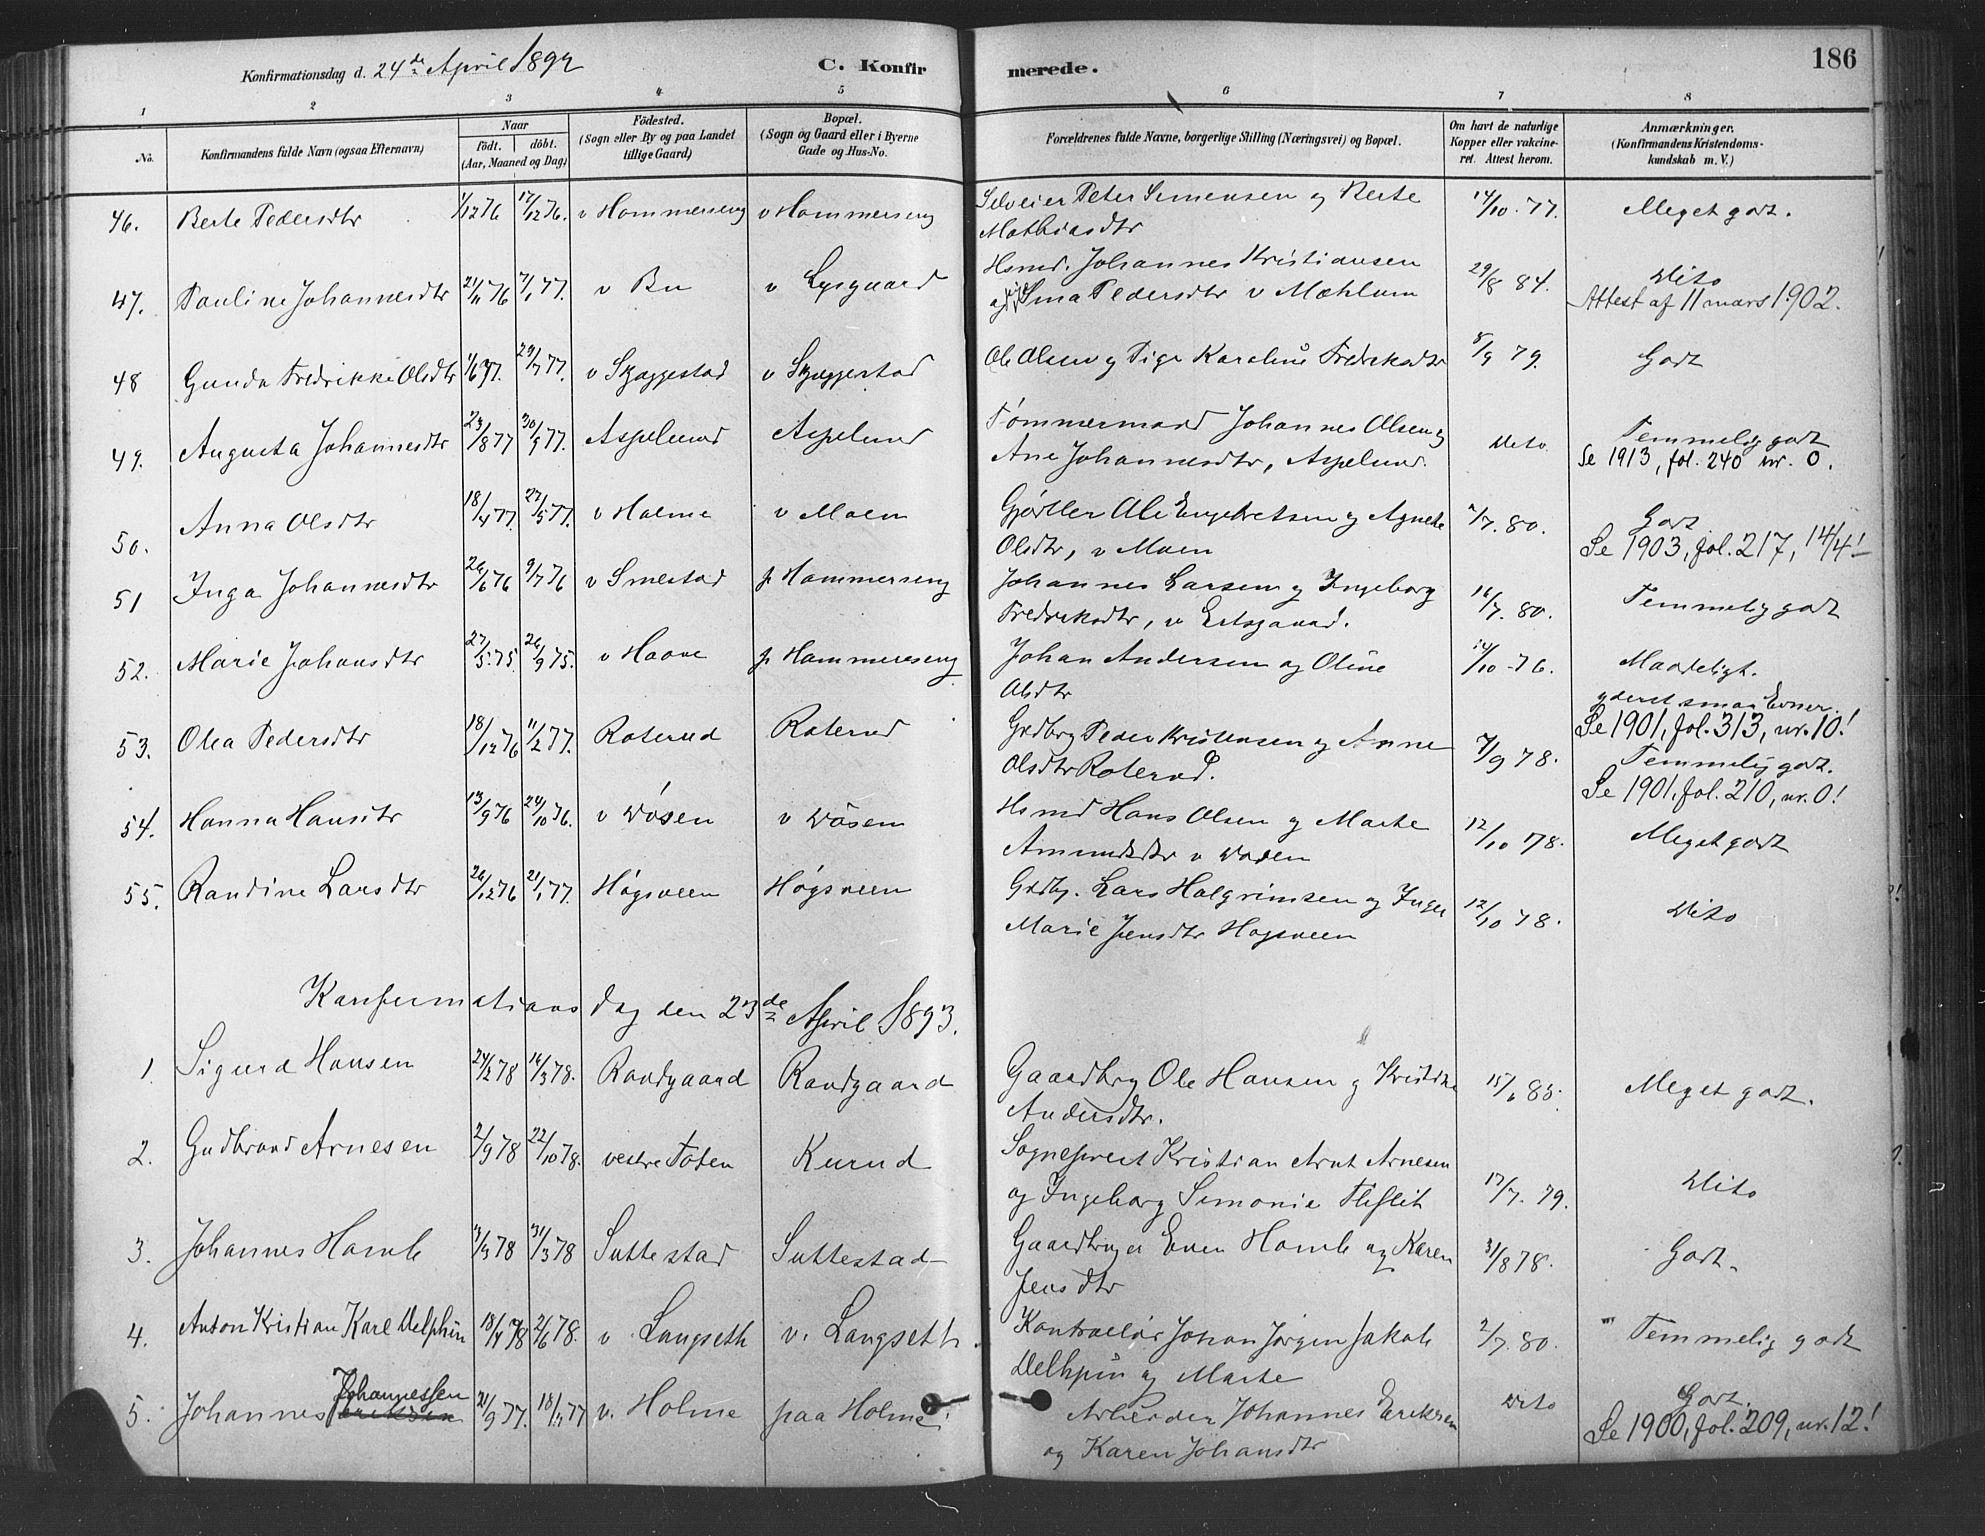 Konfirmationsdag d. 24de April 1892
C. Konfirmerede.
186
1 2 3 4 5 6 7 8
No.
Konfirmandens fulde Navn (ogsaa Efternavn)
Naar
födt. döbt.
(Aar, Maaned og Dag)
Födested.
(Sogn eller By og paa Landet
tillige Gaard)
Bopæl.
(Sogn og Gaard eller i Byerne
Gade og Hus-No.
Forældrenes fulde Navne, borgerlige Stilling (Næringsvei) og Bopæl.
Om havt de naturlige
Kopper eller vakcine-
ret. Attest herom.
Anmærkninger.
(Konfirmandens Kristendoms-
kundskab m. V.)
46. Berte Pedersdtr 1/12 76 17/12 76. v Hammerseng v Hammerseng Selveier Peter Simensen og Berte 14/10 77. Meget godt.
Mathiasdtr
47. Pauline Johannesdtr 21/11 76 7/1 77. v Bu v Lysgaard Hsmd. Johannes Kristiansen 29/8 84. Dito
Pedersdtr v Mæhlum Attest af 11 mars 1902.
48 Gunda Fredrikke Olsdtr 29/7 77. v Skjeggestad v Skjeggestad Ole Olsen og Pige Karoline Fredriksdtr 8/9 79. Godt
49. Augusta Johannesdtr 23/8 77 30/9 77. Aspelund Aspelund Tømmermand Johannes Olsen og Dito Temmelig godt
Ane Johannesdtr, Aspelund. Se 1913, fol. 240 nr. 0.
50. Anna Olsdtr 18/4 77. 27/5 77. v Holme v Moen Gjørtler Ole Engebretsen og Agnete 80. Godt
Olsdtr, v Moen Se 1903, fol. 217, 14/4!
51 Inga Johannesdtr 26/6 76 9/7 76 v Smestad p Hammerseng Johannes Larsen og Ingeborg 16/7. 80. Temmelig godt
Fredriksdtr, v
52. Marie Johansdtr 27/5 75. 26/9 75. v Haave p Hammerseng Johan Andersen og Oline 14/10 76. Maadeligt.
Olsdtr yderst smaa Evner.
53. Olea Pedersdtr 18/12 76 11/2 77. Roterud Roterud Grdbrg Peder Kristensen og Anne 7/9 78. Se 1901, fol. 313, nr. 10!
Olsdtr Roterud. Temmelig godt.
Se 1901, fol. 210, nr. 0!
54. Hanna Hansdtr 13/9 76 29/10 76. v Døsen v Døsen Hsmd Hans Olsen og Marte 12/10 78. Meget godt
Amundsdtr v
55. Randine Larsdtr 26/12 76 21/1 77. Høgsveen Høgsveen Grdbg. Lars Halgrimsen og Inger 12/10 78. Dito
Marie Jensdtr Høgsveen
Konfirmationsdag den 23de April 1893.
1. Sigurd Hansen 24/2 78 16/3 78. Randgaard Randgaard Gaardbrg Ole Hansen og Kristine 15/6 85. Meget godt.
Andersdtr.
2. Gudbrand Arnesen 2/9 78 22/10 78. vestre Toten Kurud Sogneprest Kristian Arnt Arnesen 17/7. 79. Dito
og Ingeborg Simonie Fliflet
3. Johannes Hamle 3/3 78 31/3 78 Suttestad Suttestad Gaardbruger Even Hamle og Karen 31/8 78. Godt.
Jensdtr
4. Anton Kristian Karl Delphin 18/4 78 2/6 78. v Langseth v. Langseth. Kontraelør Johan Jørgen Jakob 2/7. 80. Temmelig godt
Delphin og Marte
5. Johannes Johannessen 21/9 77. 18/11 77 v. Holme paa Holme Arbeider Johannes Eriksen Dito Godt.
og Karen Johansdtr Se 1900, fol. 209, nr. 12!